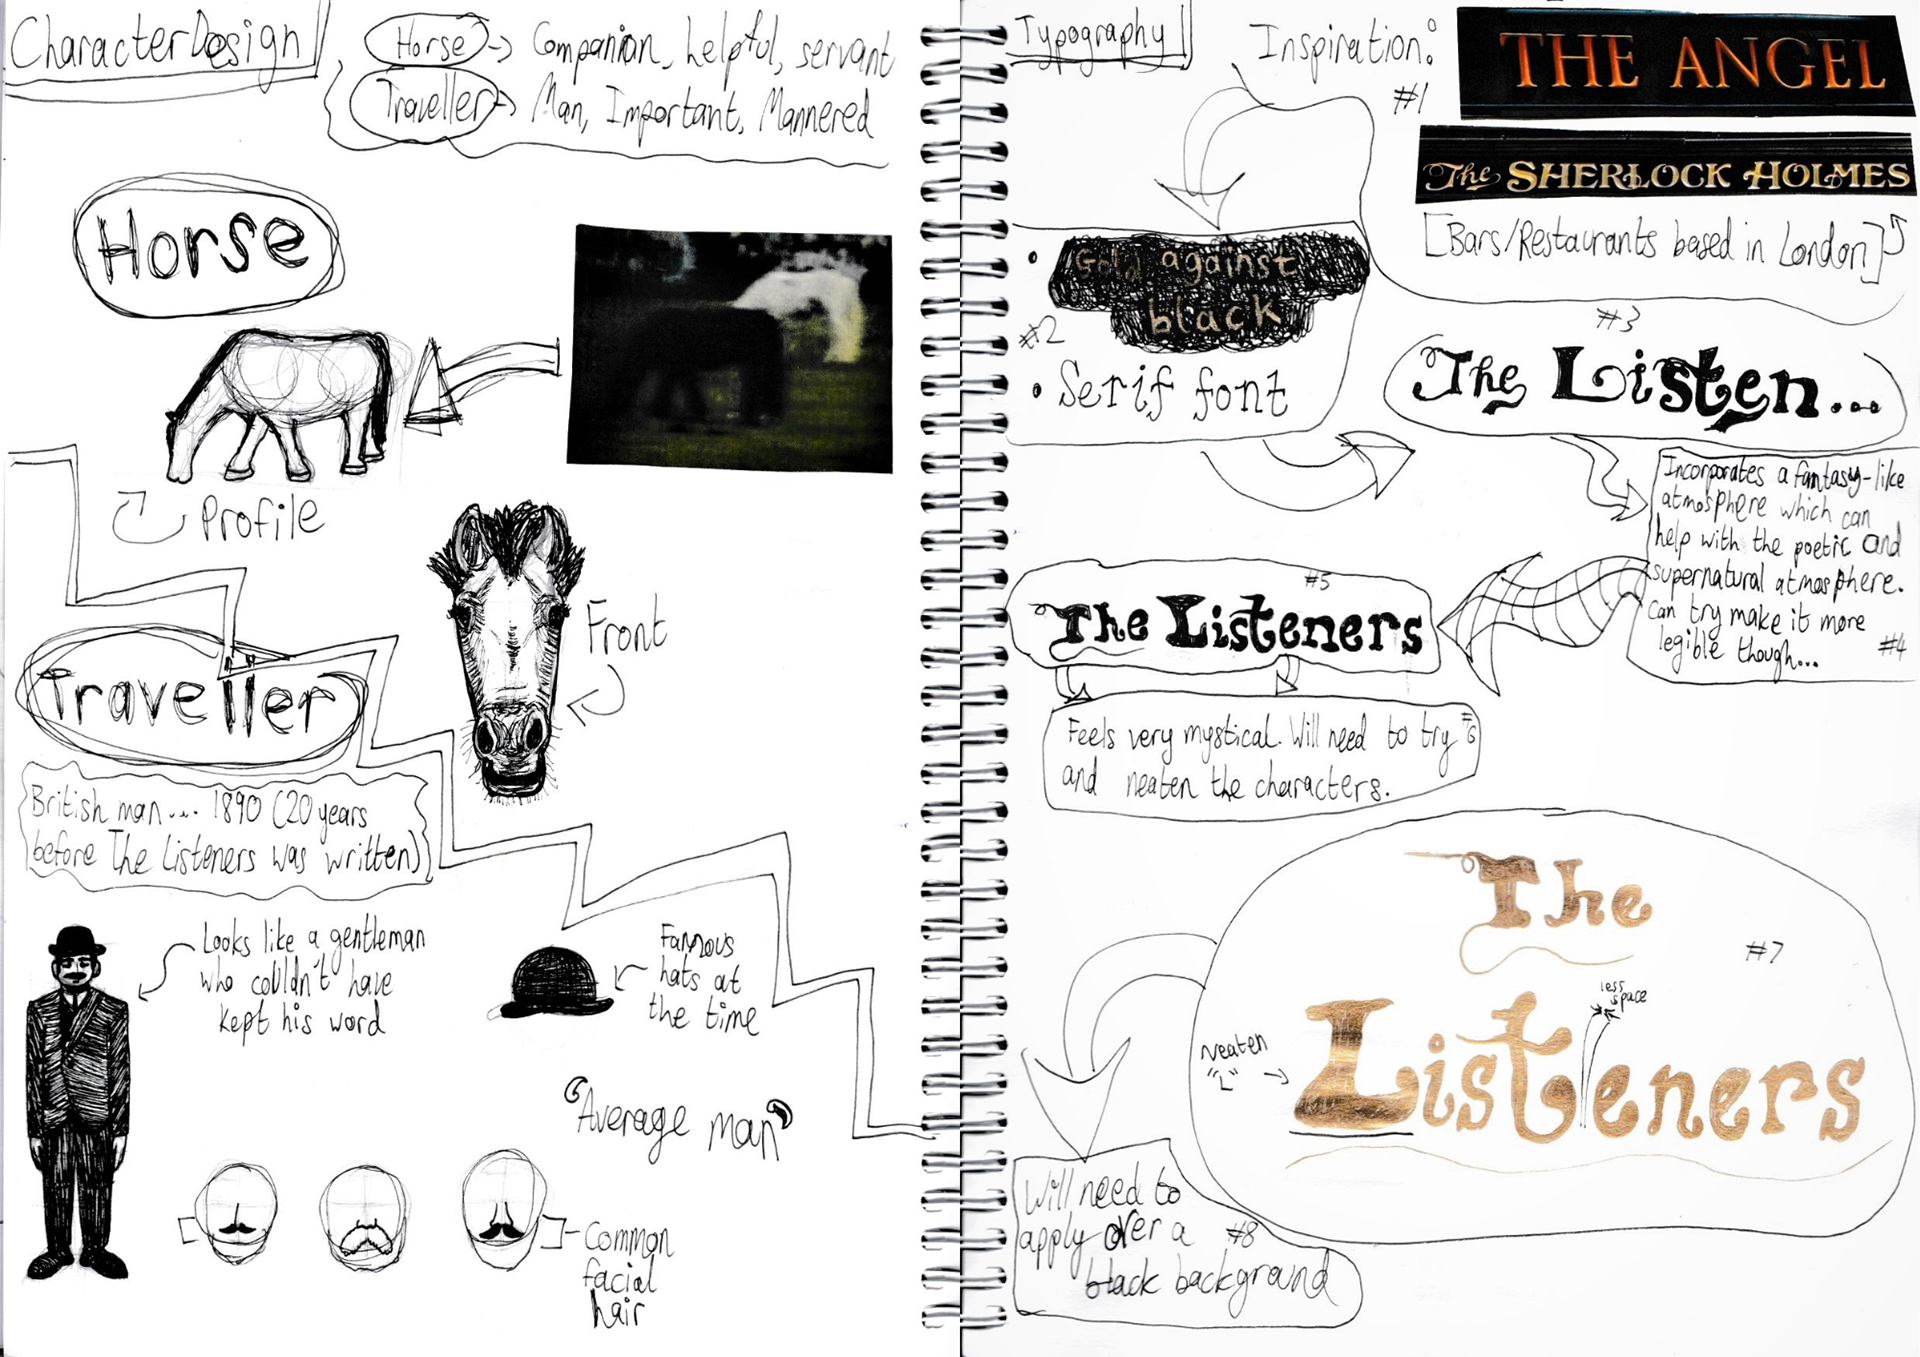 Character Design
Horse -> Companion, helpful, servant
Traveller -> Man, Important, Mannered
Horse
Profile
Front
Traveller
British man.... 1890 (20 years
before The Listeners was written)
Looks like a gentleman
who couldn't have
kept his word
Famous
hats at
the time
"Average man"
Common
facial
hair
Typography
Inspiration:
#1
THE ANGEL
The SHERLOCK HOLMES
[Bars/Restaurants based in London]
• Gold against
black
#2
• Serif font
#3
The Listen...
Incorporates a fantasy-like
atmosphere which can
help with the poetic and
supernatural atmosphere.
Can try make it more
legible though...
#4
#5
The Listeners
Feels very mystical. Will need to try
and neaten the characters.
#6
The
#7
less
space
Neaten
"L"
Listeners
Will need to
apply over a
black background
#8